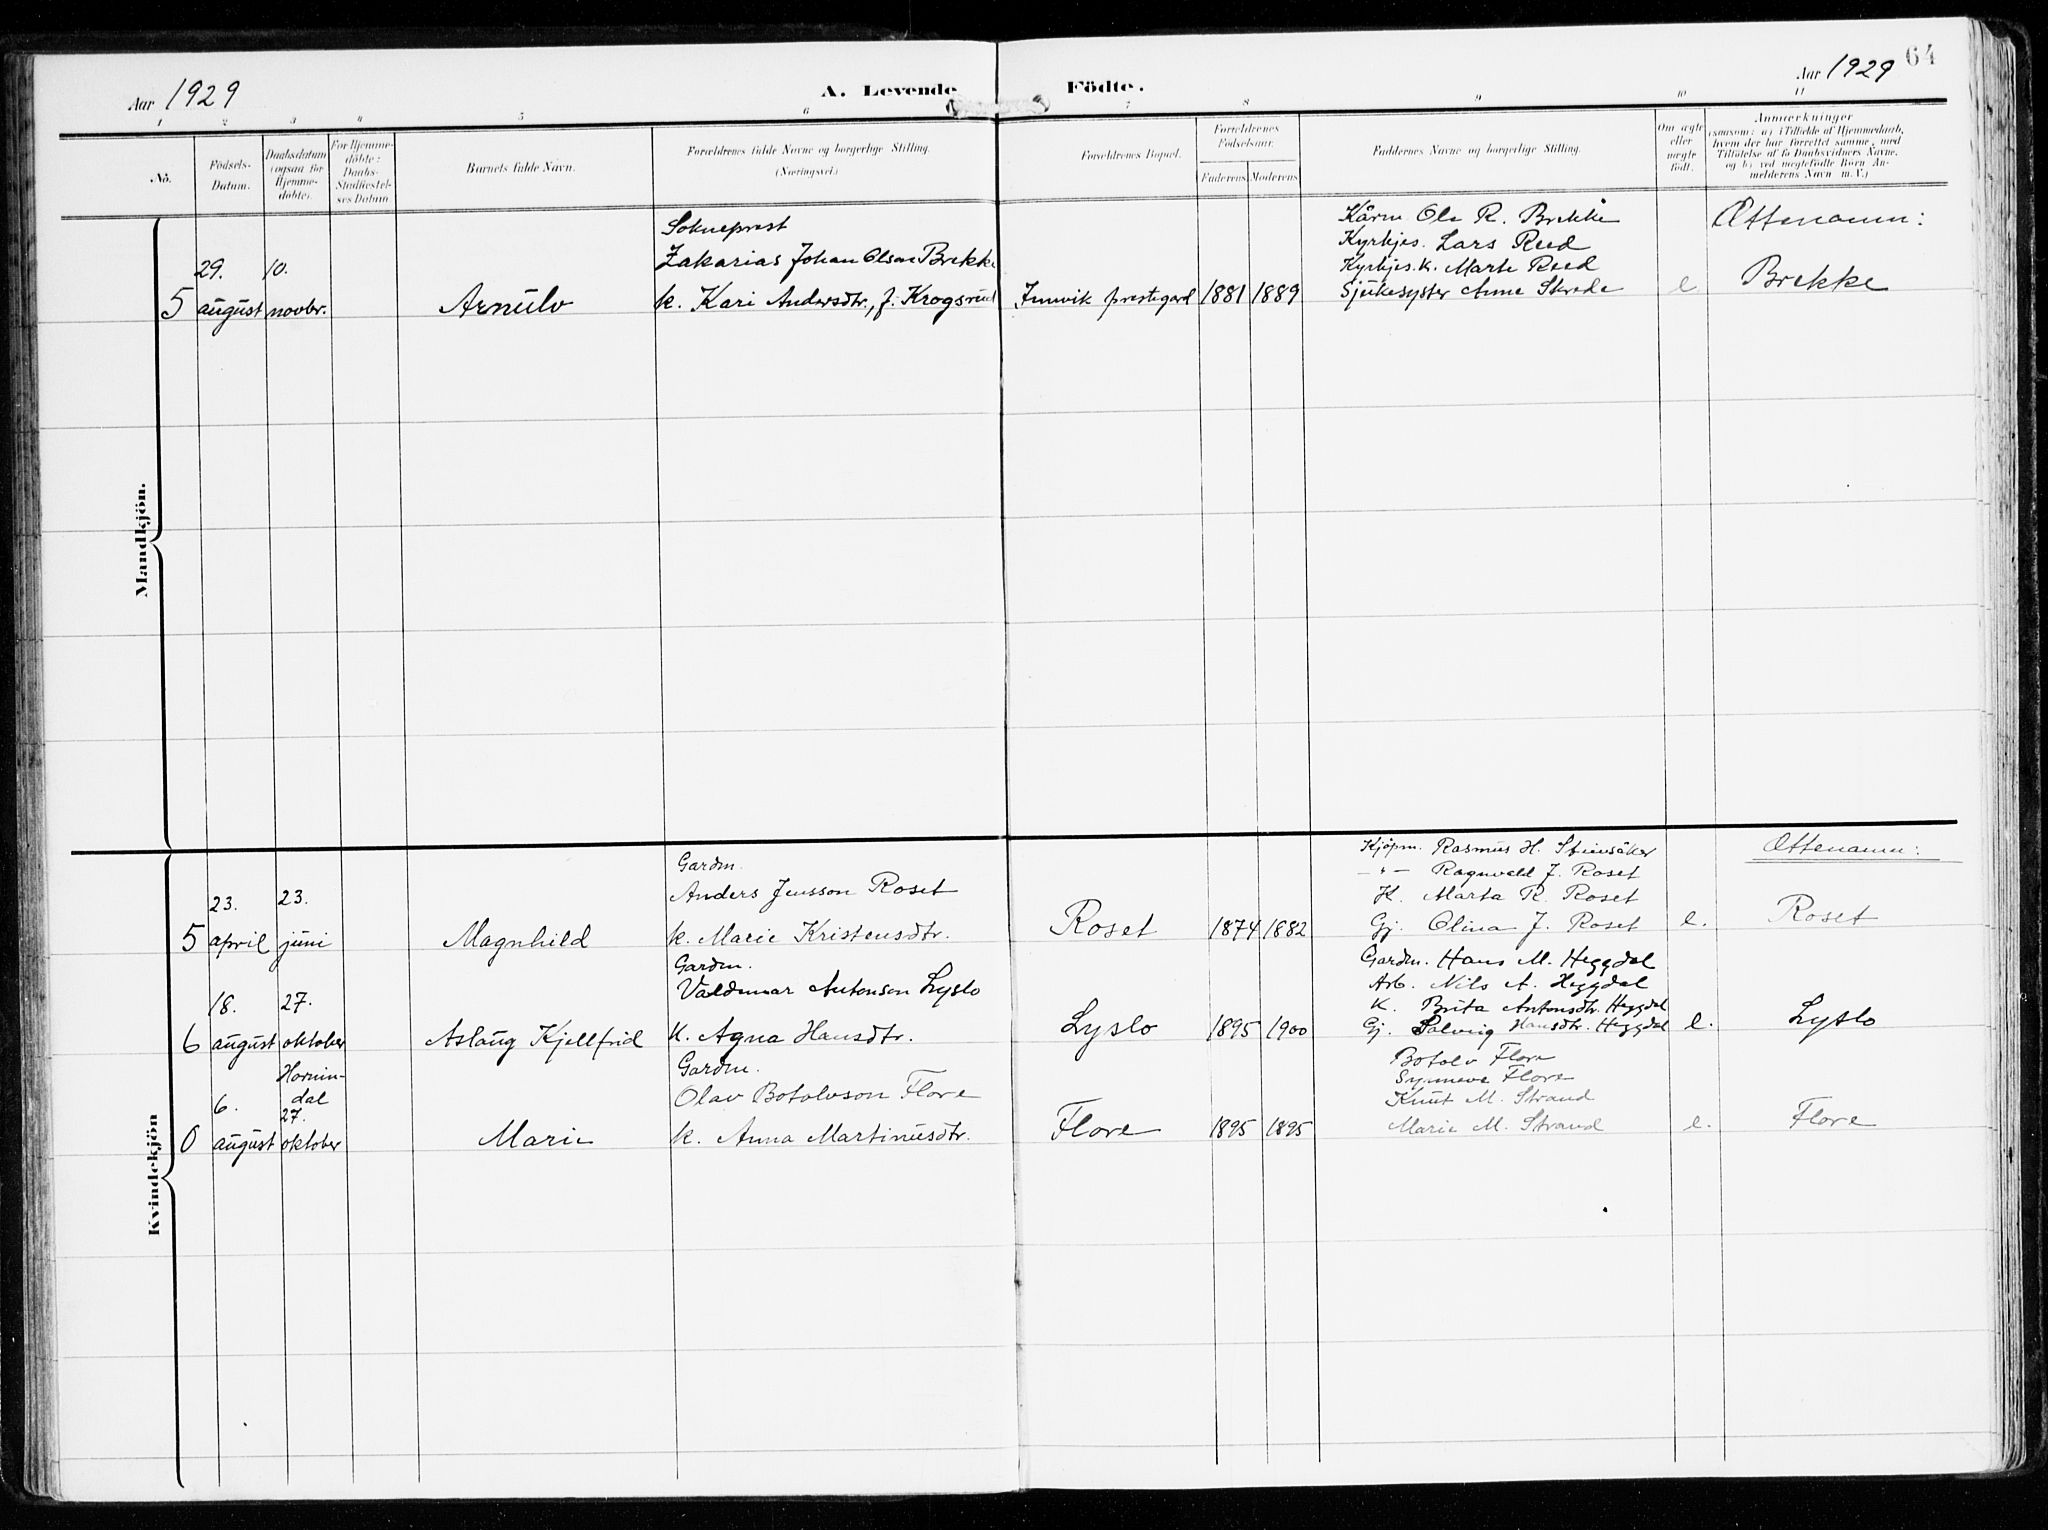 64
Aar 1929
A. Levende Födte.
Aar 1929
1 2 3 4 5 6 7 8 9 10 11
No.
Födsels-
Datum.
Daabsdatum
(ogsaa for
Hjemme-
döbte).
For Hjemme-
döbte:
Daabs-
Stadfæstel-
ses Datum
Barnets fulde Navn.
Forældrenes fulde Navne og borgerlige Stilling.
(Næringsvei.)
Forældrenes Bopæl.
Forældrenes
Födselsaar.
Faderens Moderens
Faddernes Navne og borgerlige Stilling.
Om ægte
eller
uægte
födt.
Anmærkninger
(saasom: a) i Tilfælde af Hjemmedaab,
hvem der har forrettet samme, med
Tilföielse af to Daabsvidners Navne,
og b) ved uægtefödte Börn An-
melderens Navn m. V.)
Mandkjön.
5
29.
august
10.
novbr.
Arnulv
Sokneprest
Zakarias Johan Olson Brekke
k. Kari Andersdtr., f. Krogsrud
Innvik prestegard
1881 1889
Kårm Ola R. Brekke
Kyrkjes. Lars Reed
Kyrkjes.k. Marte Reed
Sjukesyster Anne Skrede
e
Ættenamn:
Brekke
Kvindekjön
5
23.
april
23.
juni
Magnhild
Gardm.
Anders Jensson Roset
k. Marie Kristensdtr.
Roset
1874 1882
Kjöpm. Rasmus H. Steinsåker
-"- Ragnvald J. Roset
K. Marta R. Roset
Gj. Olina J. Roset
e.
Ættenamn:
Roset
6
18.
august
27.
oktober
Aslaug Kjellfrid
Gardm.
Valdemar Antonson Lyslo
k. Agna Hansdtr.
Lyslo
1895 1900
Gardm. Hans M. Heggdal
Arb. Nils A. Heggdal
K. Brita Antonsdtr. Heggdal
Gj. Solveig Hansdtr. Heggdal
e.
Lyslo
0
6.
august
Hornin-
dal
27.
oktober
Marie
Gardm.
Olav Botolvson Flore
k. Anna Martinusdtr.
Flore
1895 1895
Botolv Flore
Synneve Flore
Knut M. Strand
Marie M. Strand
e.
Flore